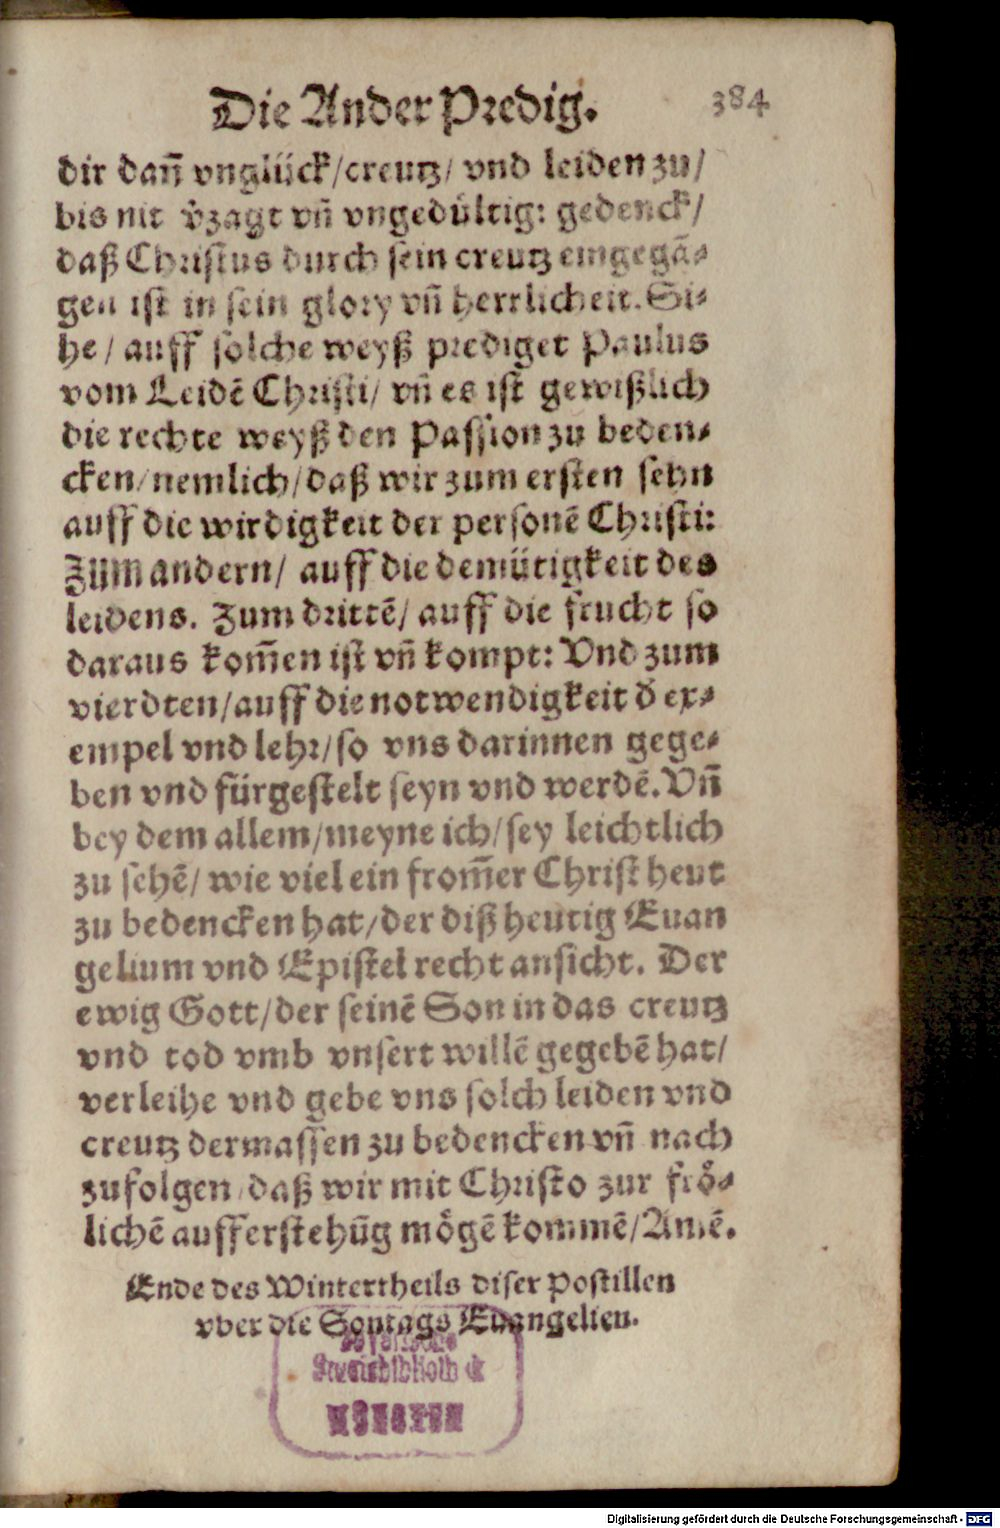 Die Ander Predig. 384
dir dañ vnglück/creutz/ vnd leiden zu/
bis nit v̈zagt vñ vngedültig: gedenck/
daß Christus durch sein creutz eingegā⸗
gen ist in sein glory vñ herrlicheit. Si⸗
he/ auff solche weyß prediget Paulus
vom Leidē Christi/ vñ es ist gewißlich
die rechte weyß den Passion zu beden⸗
cken/nemlich/daß wir zum ersten sehn
auff die wirdigkeit der personē Christi:
Zum andern/ auff die demütigkeit des
leidens. Zum drittē/ auff die frucht so
daraus kom̃en ist vñ kompt: Vnd zum
vierdten/auff die notwendigkeit d̓ ex⸗
empel vnd lehr/so vns darinnen gege⸗
ben vnd fürgestelt seyn vnd werdē. Vñ
bey dem allem/meyne ich/sey leichtlich
zu sehē/ wie viel ein from̃er Christ heut
zu bedencken hat/der diß heutig Euan
gelium vnd Epistel recht ansicht. Der
ewig Gott/der seinē Son in das creutz
vnd tod vmb vnsert willē gegebē hat/
verleihe vnd gebe vns solch leiden vnd
creutz dermassen zu bedencken vñ nach
zufolgen/daß wir mit Christo zur frö⸗
lichē aufferstehūg mögē kommē/Amē.
Ende des Wintertheils diser Postillen
vber die Sontags Euangelien.
Bayerische
Staatsbibliothek
MÜNCHEN
Digitalisierung gefördert durch die Deutsche Forschungsgemeinschaft - DFG